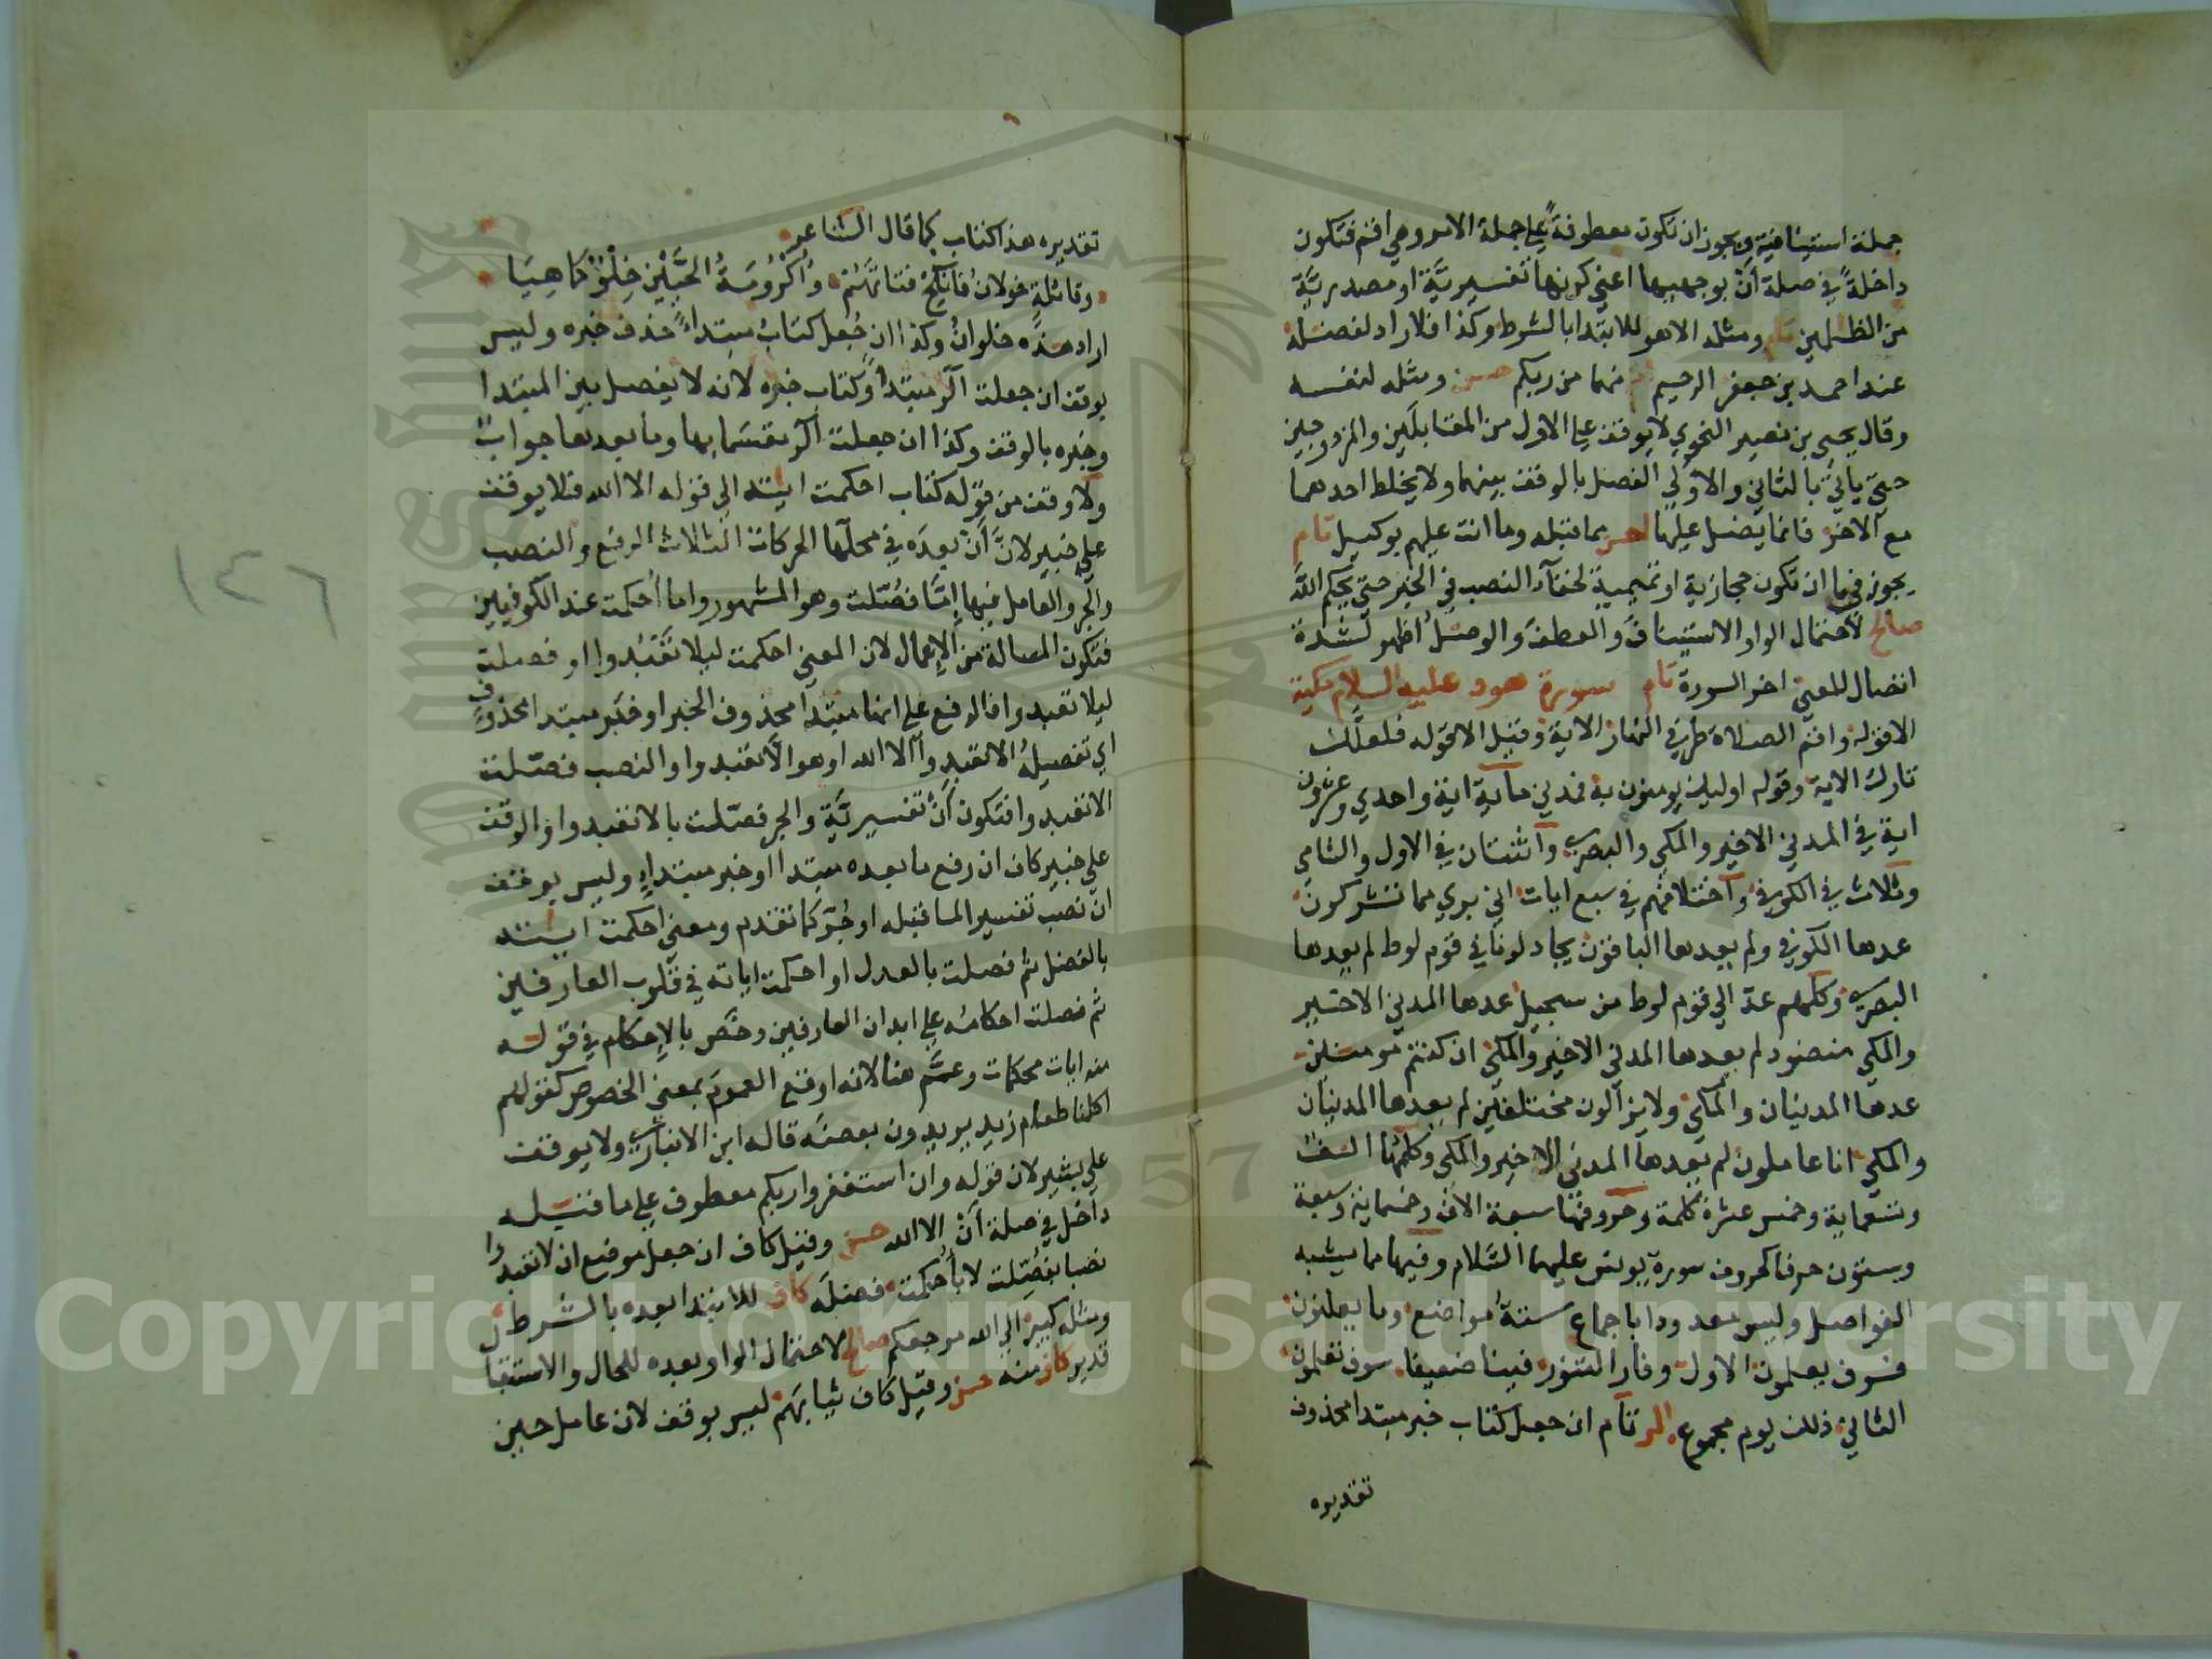 جملة استينافية ويجوز ان تكون معطوفةً على جملة الامر وهي اقم فتكون
داخلةً في صلة أنْ بوجهيها اعني كونها تفسيريَّة او مصدريَّة
من الظلمين تام ومثله الا هو للابتدا بالشرط وكذا فلا راد لفضله
عند احمد بن جعفر الرحيم تام منهما من ربكم حسن ومثله لنفسه
وقال يحيى بن نصير النحوي لا يوقف على الاول من المقابلَين والمزدوجين
حتى ياتي بالثاني والاولى الفصل بالوقف بينهما ولا يخلط احدهما
مع الاخر فانما يضل عليها احسن مما قبله وما انت عليهم بوكيل تام
يجوز في ما ان تكون حجازية او تميمية لخفآء النصب في الخبر حتى يحكم الله
صالح لاحتمال الواو الاستيناف والعطف والوصل اظهر لشدة
اتصال المعنى اخر السورة تام سورة هود عليه السلام مكية
الا قوله واقم الصلاة طرفي النهار الاية وقيل الا قوله فلعلَّك
تارك الاية وقوله اوليك يومنون به فمدني ماية اية واحدى وعشرون
اية في المدني الاخير والمكي والبصري واثنتان في الاول والشامي
وثلاث في الكوفي واختلافهم في سبع ايات اني بري مما تشركون
عدها الكوفي ولم يعدها الباقون يجادلونا في قوم لوط لم يعدها
البصري وكلهم عدّ الى قوم لوط من سجيل عدها المدني الاخير
والمكي منضود لم يعدها المدني الاخير والمكي ان كنتم مومنين
عدها المدنيان والمكي ولا يزالون مختلفين لم يعدها المدنيان
والمكي انا عاملون لم يعدها المدني الاخير والمكي وكلمها الفٌ
وتسعماية وخمس عشرة كلمة وحروفها سبعة الاف وخمسماية وسبعة
وستون حرفا كحروف سورة يونس عليهما السَّلام وفيها مما يشبه
الفواصل وليس معدودا باجماع ستةُ مواضع وما يعلنون
فسوف يعلمون الاول وفار التنور فينا ضعيفا سوف تعلمون
الثاني ذلك يوم مجموع الر تام ان جعل كتاب خبر مبتدا محذوف
تقديره
تقديره هذا كتاب كما قال الشاعر
وقائلةٍ خولانُ فانكح فتاتَهُمْ وأُكْرُومَةُ الحَيَّيْنِ خِلْوٌ كَمَا هِيَا
اراد هذه خولانُ وكذا ان جُعل كتابٌ مبتداءً حذف خبره وليس
بوقف ان جعلت الر مبتداً وكتاب خبره لانه لا يفصل بين المبتدا
وخبره بالوقف وكذا ان جعلت الر مقسَما بها وما بعدها جوابٌ
ولا وقف من قوله كتاب احكمت ايته الى قوله الا الله فلا يوقف
على خبير لانَّ أَنْ بعدَه في محلّها الحركات الثلاث الرفع والنصب
والجر والعامل فيها إمَّا فُصّلت وهو المشهور واما أُحكمت عند الكوفيين
فتكون المسالة من الإعمال لان المعنى احكمت ليلا تَعْبُدوا او فصلت
ليلا تعبدوا فالرفع على انها مبتدا محذوف الخبر او خبر مبتدا محذوف
اي تفصيلُه ألا تعبدوآ الا الله او هو الَّا تعبدوا والنصب فصّلت
الا تعبدوا فتكون أَنْ تفسيريَّة والجر فصّلت بالا تعبدوا والوقف
على خبير كاف ان رفع ما بعده مبتدا او خبر مبتداءٍ وليس بوقف
ان نصب تفسير الما قبله او جُرّ كما تقدم ومعنى احكمت ايته
بالفضل ثم فصلت بالعدل او احكمت اياته في قلوب العارفين
ثم فصلت احكامُه على ابدان العارفين وخصَّ بالإحكام في قوله
منه ايات محكمات وعمَّ هنا لانه اوقع العموم بمعنى الخصوص كقولهم
اكلنا طعام زيد يريدون بعضَه قاله ابن الانباري ولا يوقف
على بشير لان قوله وان استغفروا ربكم معطوف على ما قبله
داخل في صلة أنْ الا الله حسن وقيل كاف ان جعل موضع ان لا تعبدوا
نصبا بفُصّلت لا بأُحكمت فضلَه كاف للابتدا بعده بالشرط
ومثله كبير الى الله مرجعكم صالح لاحتمال الواو بعده للحال والاستقبال
قدير كاف منه حسن وقيل كاف ثيابَهم ليس بوقف لان عامل حين
١٤٦
Copyright © King Saud University
1957